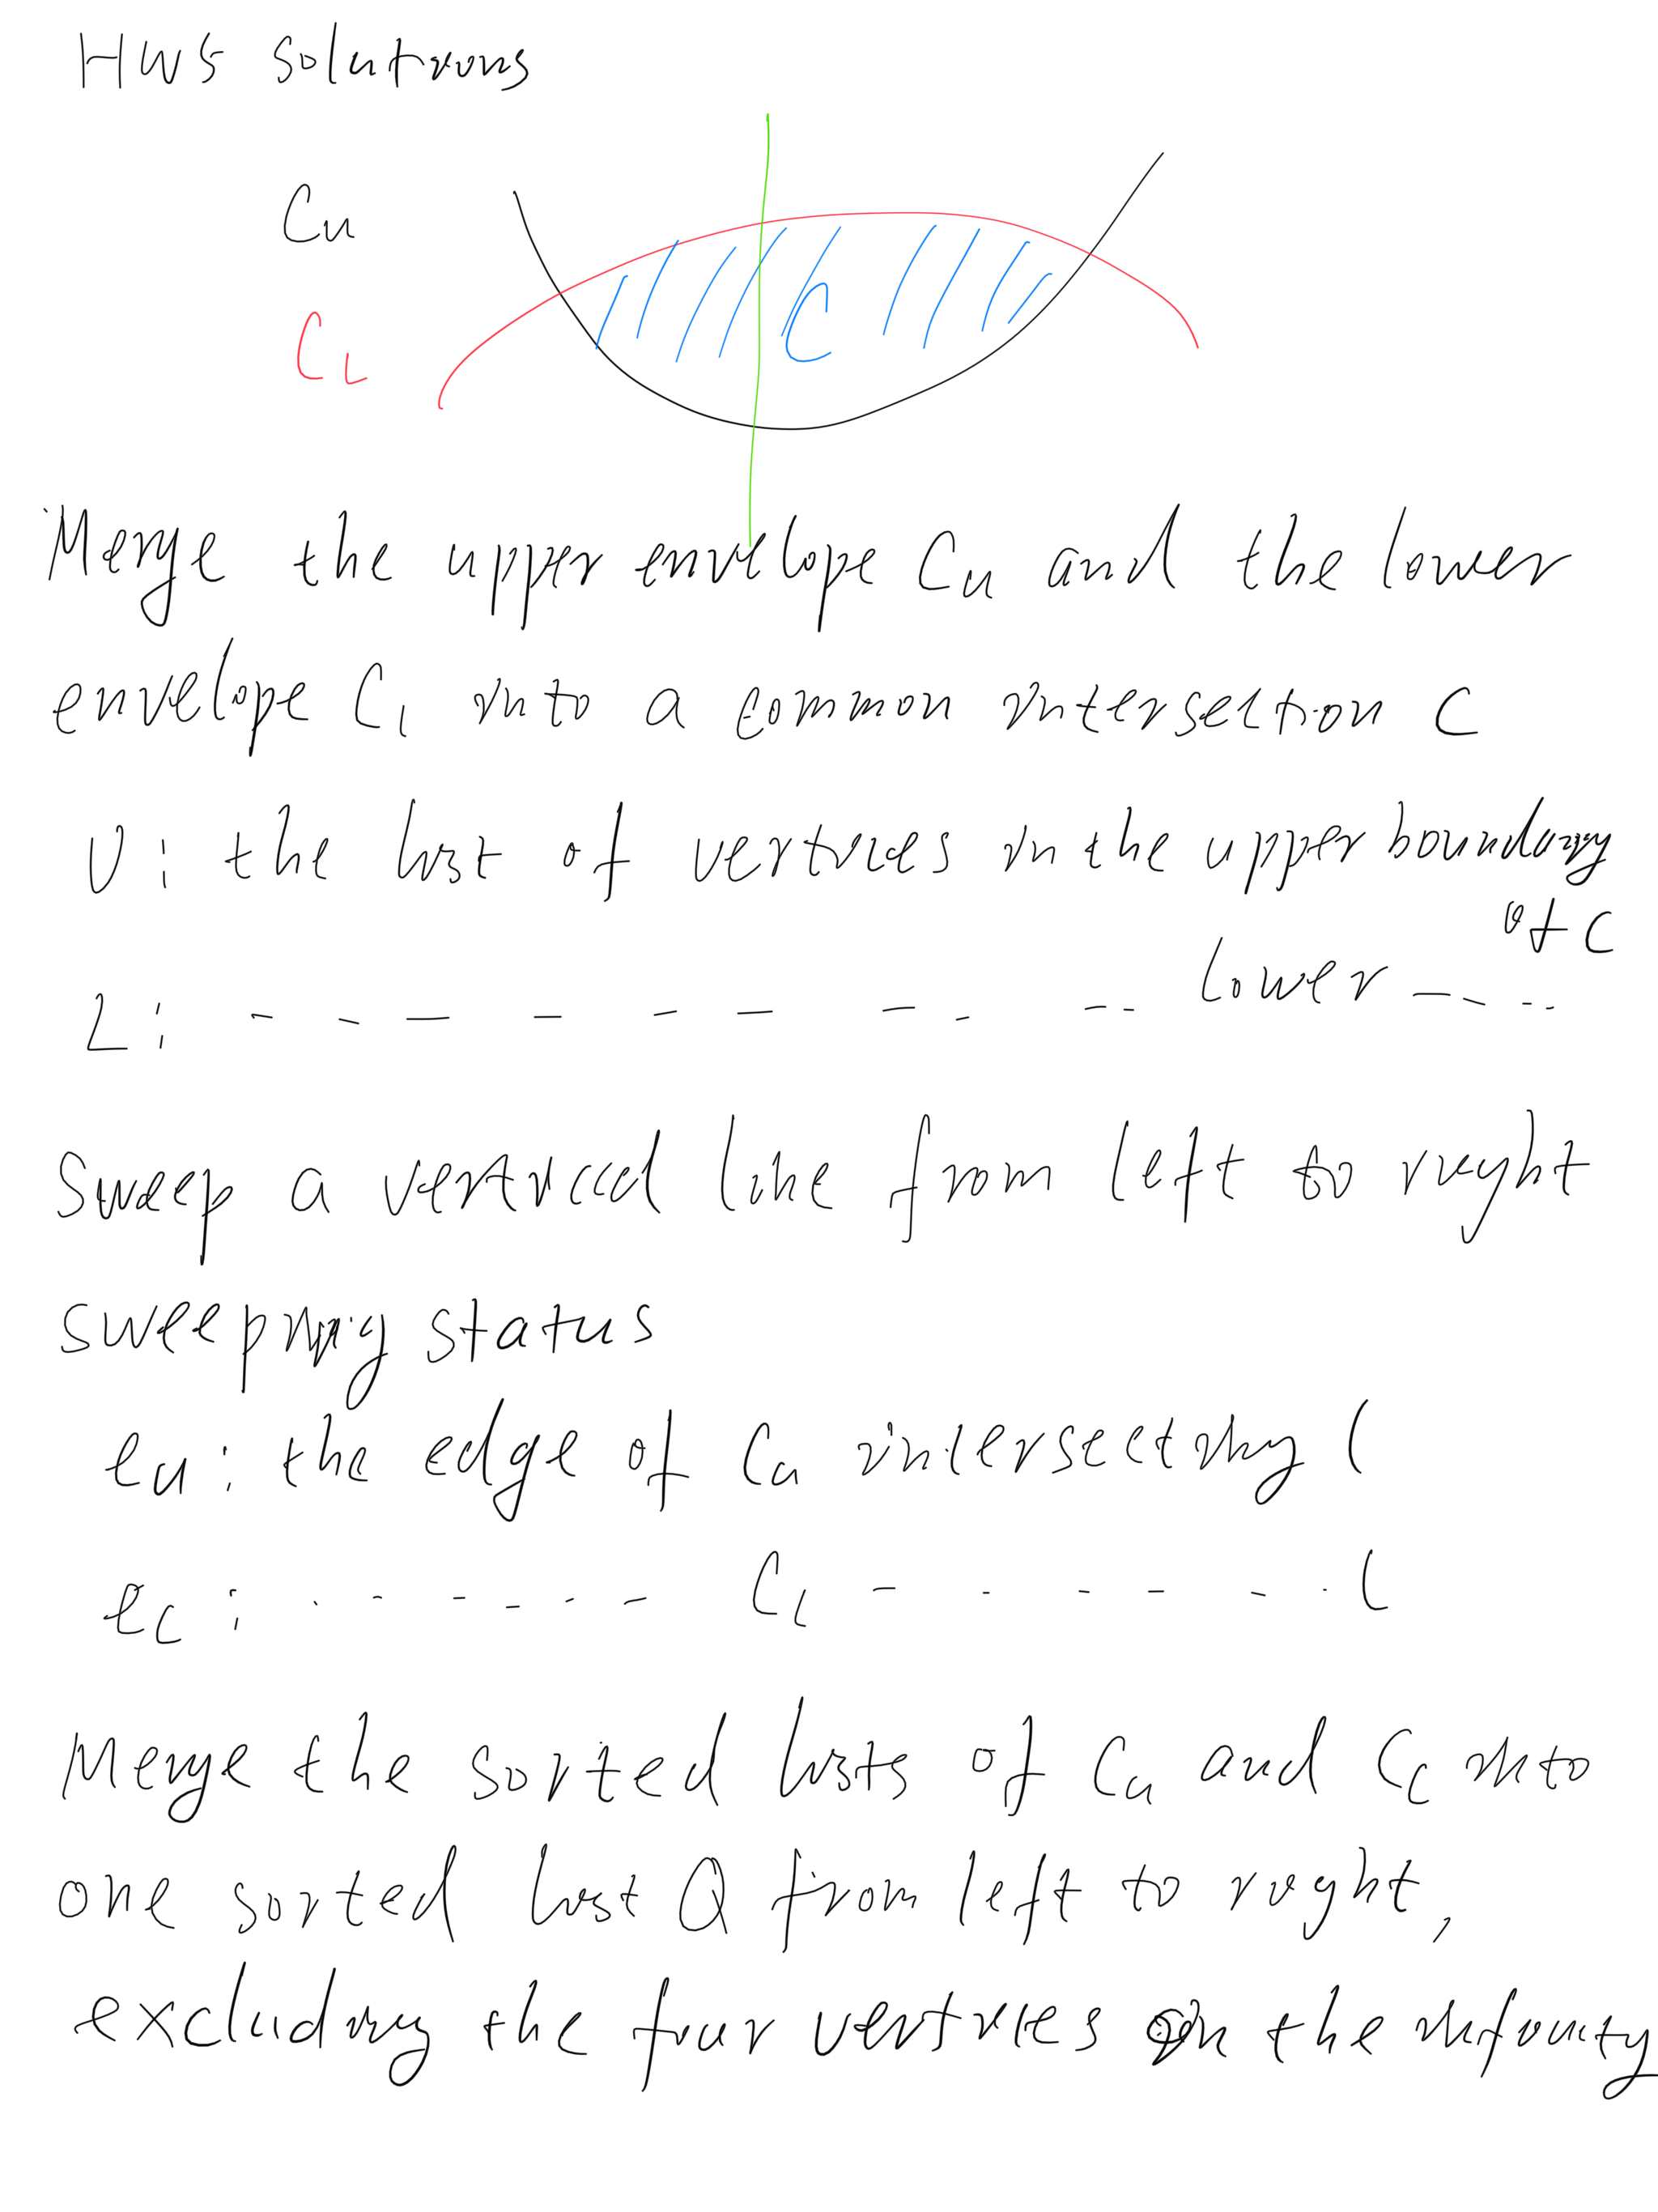 HW5 solutions
Cu
CL
C
Merge the upper envelope Cu and the lower
envelope CL into a common intersection C
U: the list of vertices in the upper boundary
of C
L: - - - - - - - - - lower - - - -
sweep a vertical line from left to right
sweeping status
eu: the edge of Cu intersecting C
eL: - - - - - - CL - - - - - - C
Merge the sorted lists of Cu and CL into
one sorted list Q from left to right,
excluding the four vertices on the infinity